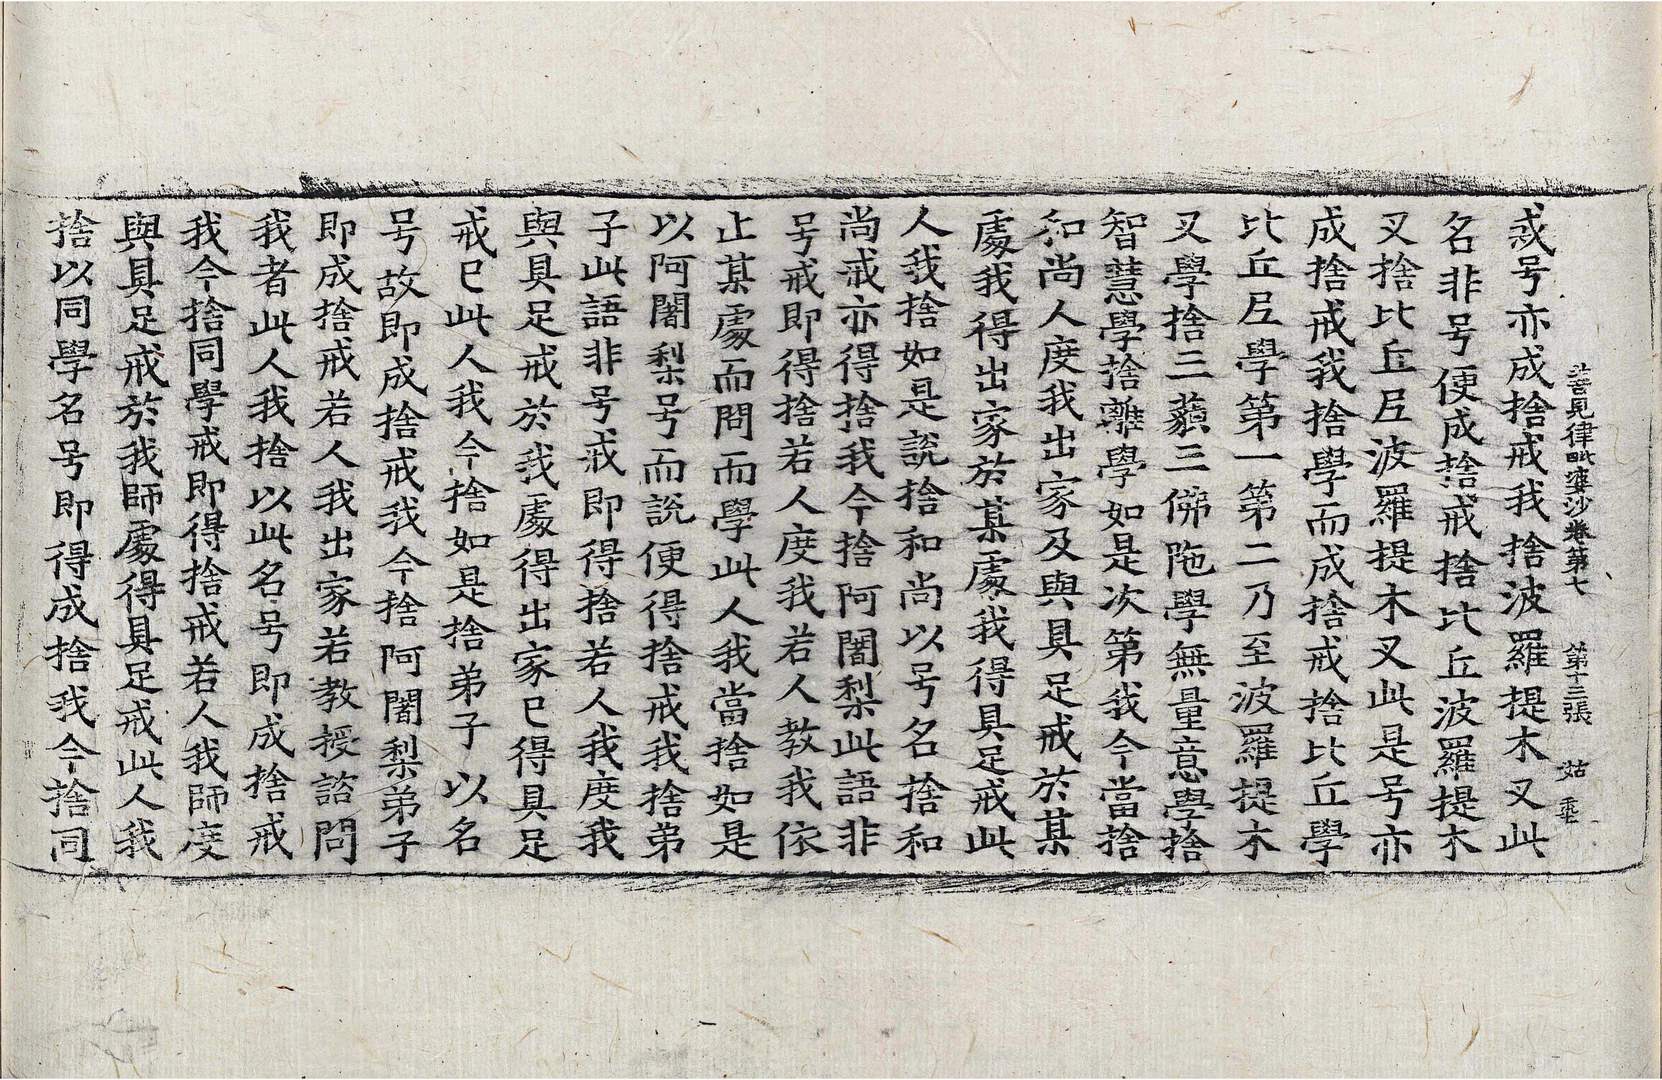 善見律毗婆沙卷第七 第十三張 姑 乖
戒号亦成捨戒我捨波羅提木叉此
名非号便成捨戒捨比丘波羅提木
叉捨比丘尼波羅提木叉此是号亦
成捨戒我捨學而成捨戒捨比丘學
比丘尼學第一第二乃至波羅提木
叉學捨三藐三佛陁學無量意學捨
智慧學捨離學如是次第我今當捨
和尚人度我出家及與具足戒於某
處我得出家於某處我得具足戒此
人我捨如是說捨和尚以号名捨和
尚戒亦得捨我今捨阿闍梨此語非
号戒即得捨若人度我若人教我依
止某處而問而學此人我當捨如是
以阿闍梨号而說便得捨戒我捨弟
子此語非号戒即得捨若人我度我
與具足戒於我處得出家已得具足
戒已此人我今捨如是捨弟子以名
号故即成捨戒我今捨阿闍梨弟子
即成捨戒若人我出家若教授諮問
我者此人我捨以此名号即成捨戒
我今捨同學戒即得捨戒若人我師度
與具足戒於我師處得具足戒此人我
捨以同學名号即得成捨我今捨同